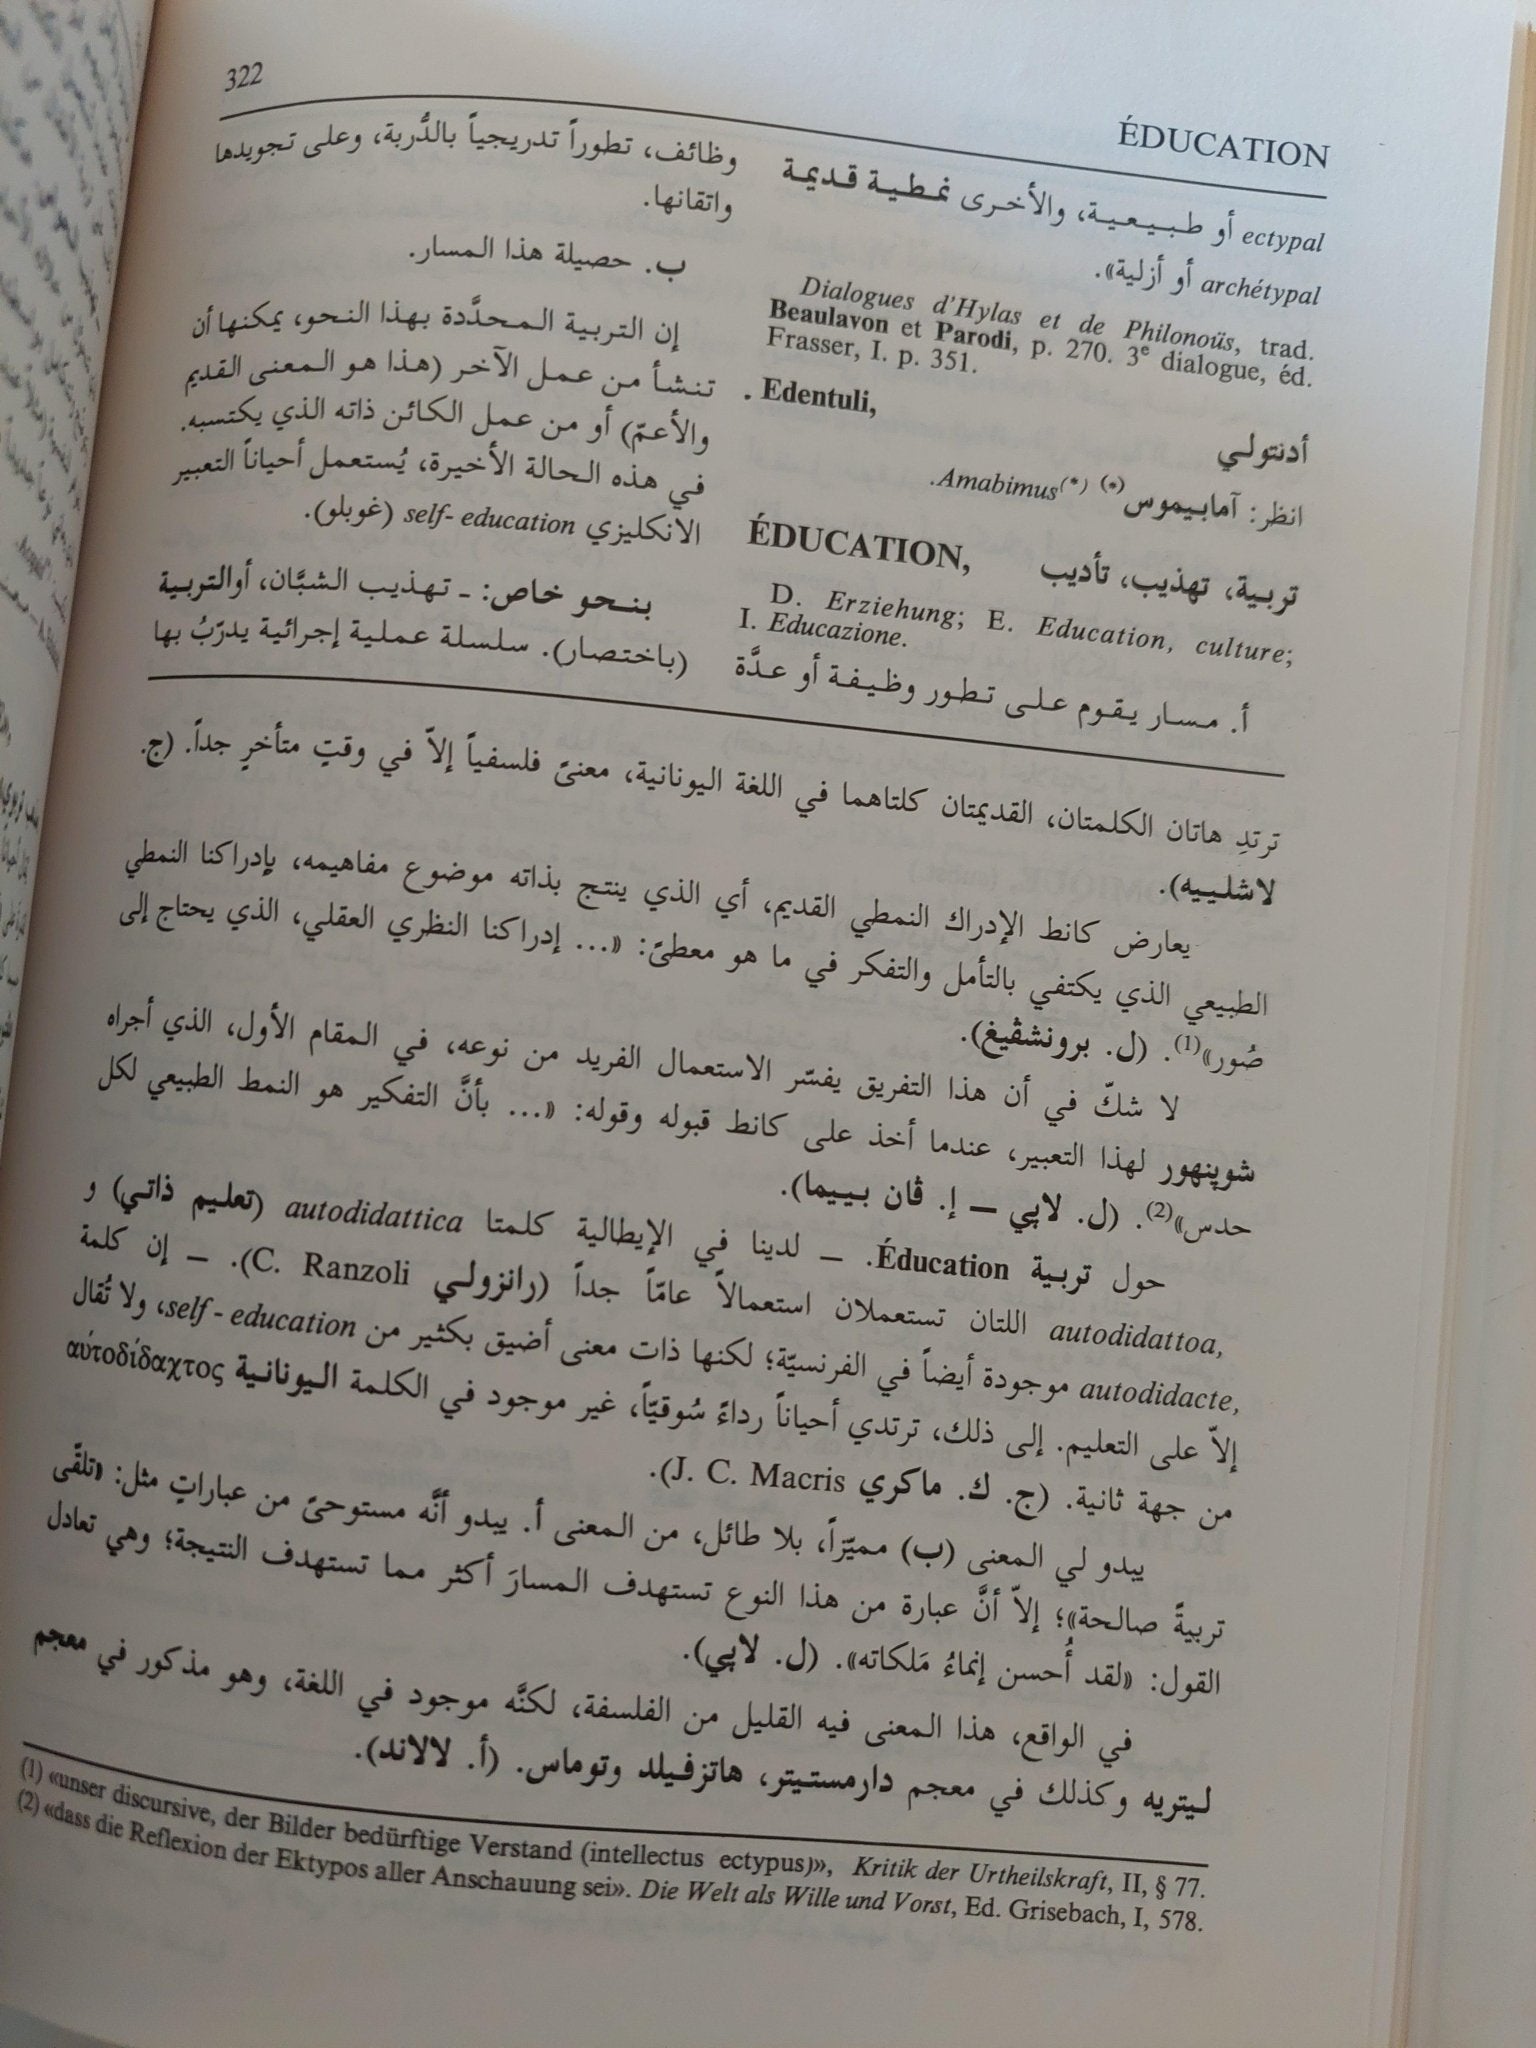 322
ÉDUCATION
ectypal أو طبيعية، والأخرى نمطية قديمة
archétypal أو أزلية».
Dialogues d'Hylas et de Philonoüs, trad.
Beaulavon et Parodi, p. 270. 3e dialogue, éd.
Frasser, I. p. 351.
. Edentuli,
أدنتولي
انظر: آمابيموس(*) Amabimus(*).
تربية، تهذيب، تأديب ÉDUCATION,
D. Erziehung; E. Education, culture;
I. Educazione.
أ. مسار يقوم على تطور وظيفة أو عدَّة
وظائف، تطوراً تدريجياً بالدُّربة، وعلى تجويدها
واتقانها.
ب. حصيلة هذا المسار.
إن التربية المحدَّدة بهذا النحو، يمكنها أن
تنشأ من عمل الآخر (هذا هو المعنى القديم
والأعمّ) أو من عمل الكائن ذاته الذي يكتسبه.
في هذه الحالة الأخيرة، يُستعمل أحياناً التعبير
الانكليزي self- education (غوبلو).
بنحو خاص: ـ تهذيب الشبَّان، أوالتربية
(باختصار). سلسلة عملية إجرائية يدرّبُ بها
ترتدِ هاتان الكلمتان، القديمتان كلتاهما في اللغة اليونانية، معنىً فلسفياً إلاّ في وقتٍ متأخرٍ جداً. (ج.
لاشلييه).
يعارض كانط الإدراك النمطي القديم، أي الذي ينتج بذاته موضوع مفاهيمه، بإدراكنا النمطي
الطبيعي الذي يكتفي بالتأمل والتفكر في ما هو معطىً: «... إدراكنا النظري العقلي، الذي يحتاج إلى
صُور»(1). (ل. برونشڤيغ).
لا شكّ في أن هذا التفريق يفسّر الاستعمال الفريد من نوعه، في المقام الأول، الذي أجراه
شوپنهور لهذا التعبير، عندما أخذ على كانط قبوله وقوله: «... بأنَّ التفكير هو النمط الطبيعي لكل
حدس»(2). (ل. لاپي — إ. ڤان بييما).
حول تربية Éducation. — لدينا في الإيطالية كلمتا autodidattica (تعليم ذاتي) و
autodidattoa, اللتان تستعملان استعمالاً عامّاً جداً (رانزولي C. Ranzoli). — إن كلمة
autodidacte, موجودة أيضاً في الفرنسيّة؛ لكنها ذات معنى أضيق بكثير من self - education، ولا تُقال
إلاّ على التعليم. إلى ذلك، ترتدي أحياناً رداءً سُوقيّاً، غير موجود في الكلمة اليونانية αὐτοδίδαχτος
من جهة ثانية. (ج. ك. ماكري J. C. Macris).
يبدو لي المعنى (ب) مميّزاً، بلا طائل، من المعنى أ. يبدو أنَّه مستوحىً من عباراتٍ مثل: «تلقّى
تربيةً صالحة»؛ إلاّ أنَّ عبارة من هذا النوع تستهدف المسارَ أكثر مما تستهدف النتيجة؛ وهي تعادل
القول: «لقد أُحسن إنماءُ مَلكاته». (ل. لاپي).
في الواقع، هذا المعنى فيه القليل من الفلسفة، لكنَّه موجود في اللغة، وهو مذكور في معجم
ليتريه وكذلك في معجم دارمستيتر، هاتزفيلد وتوماس. (أ. لالاند).
(1) «unser discursive, der Bilder bedürftige Verstand (intellectus ectypus)», Kritik der Urtheilskraft, II, § 77.
(2) «dass die Reflexion der Ektypos aller Anschauung sei». Die Welt als Wille und Vorst, Ed. Grisebach, I, 578.